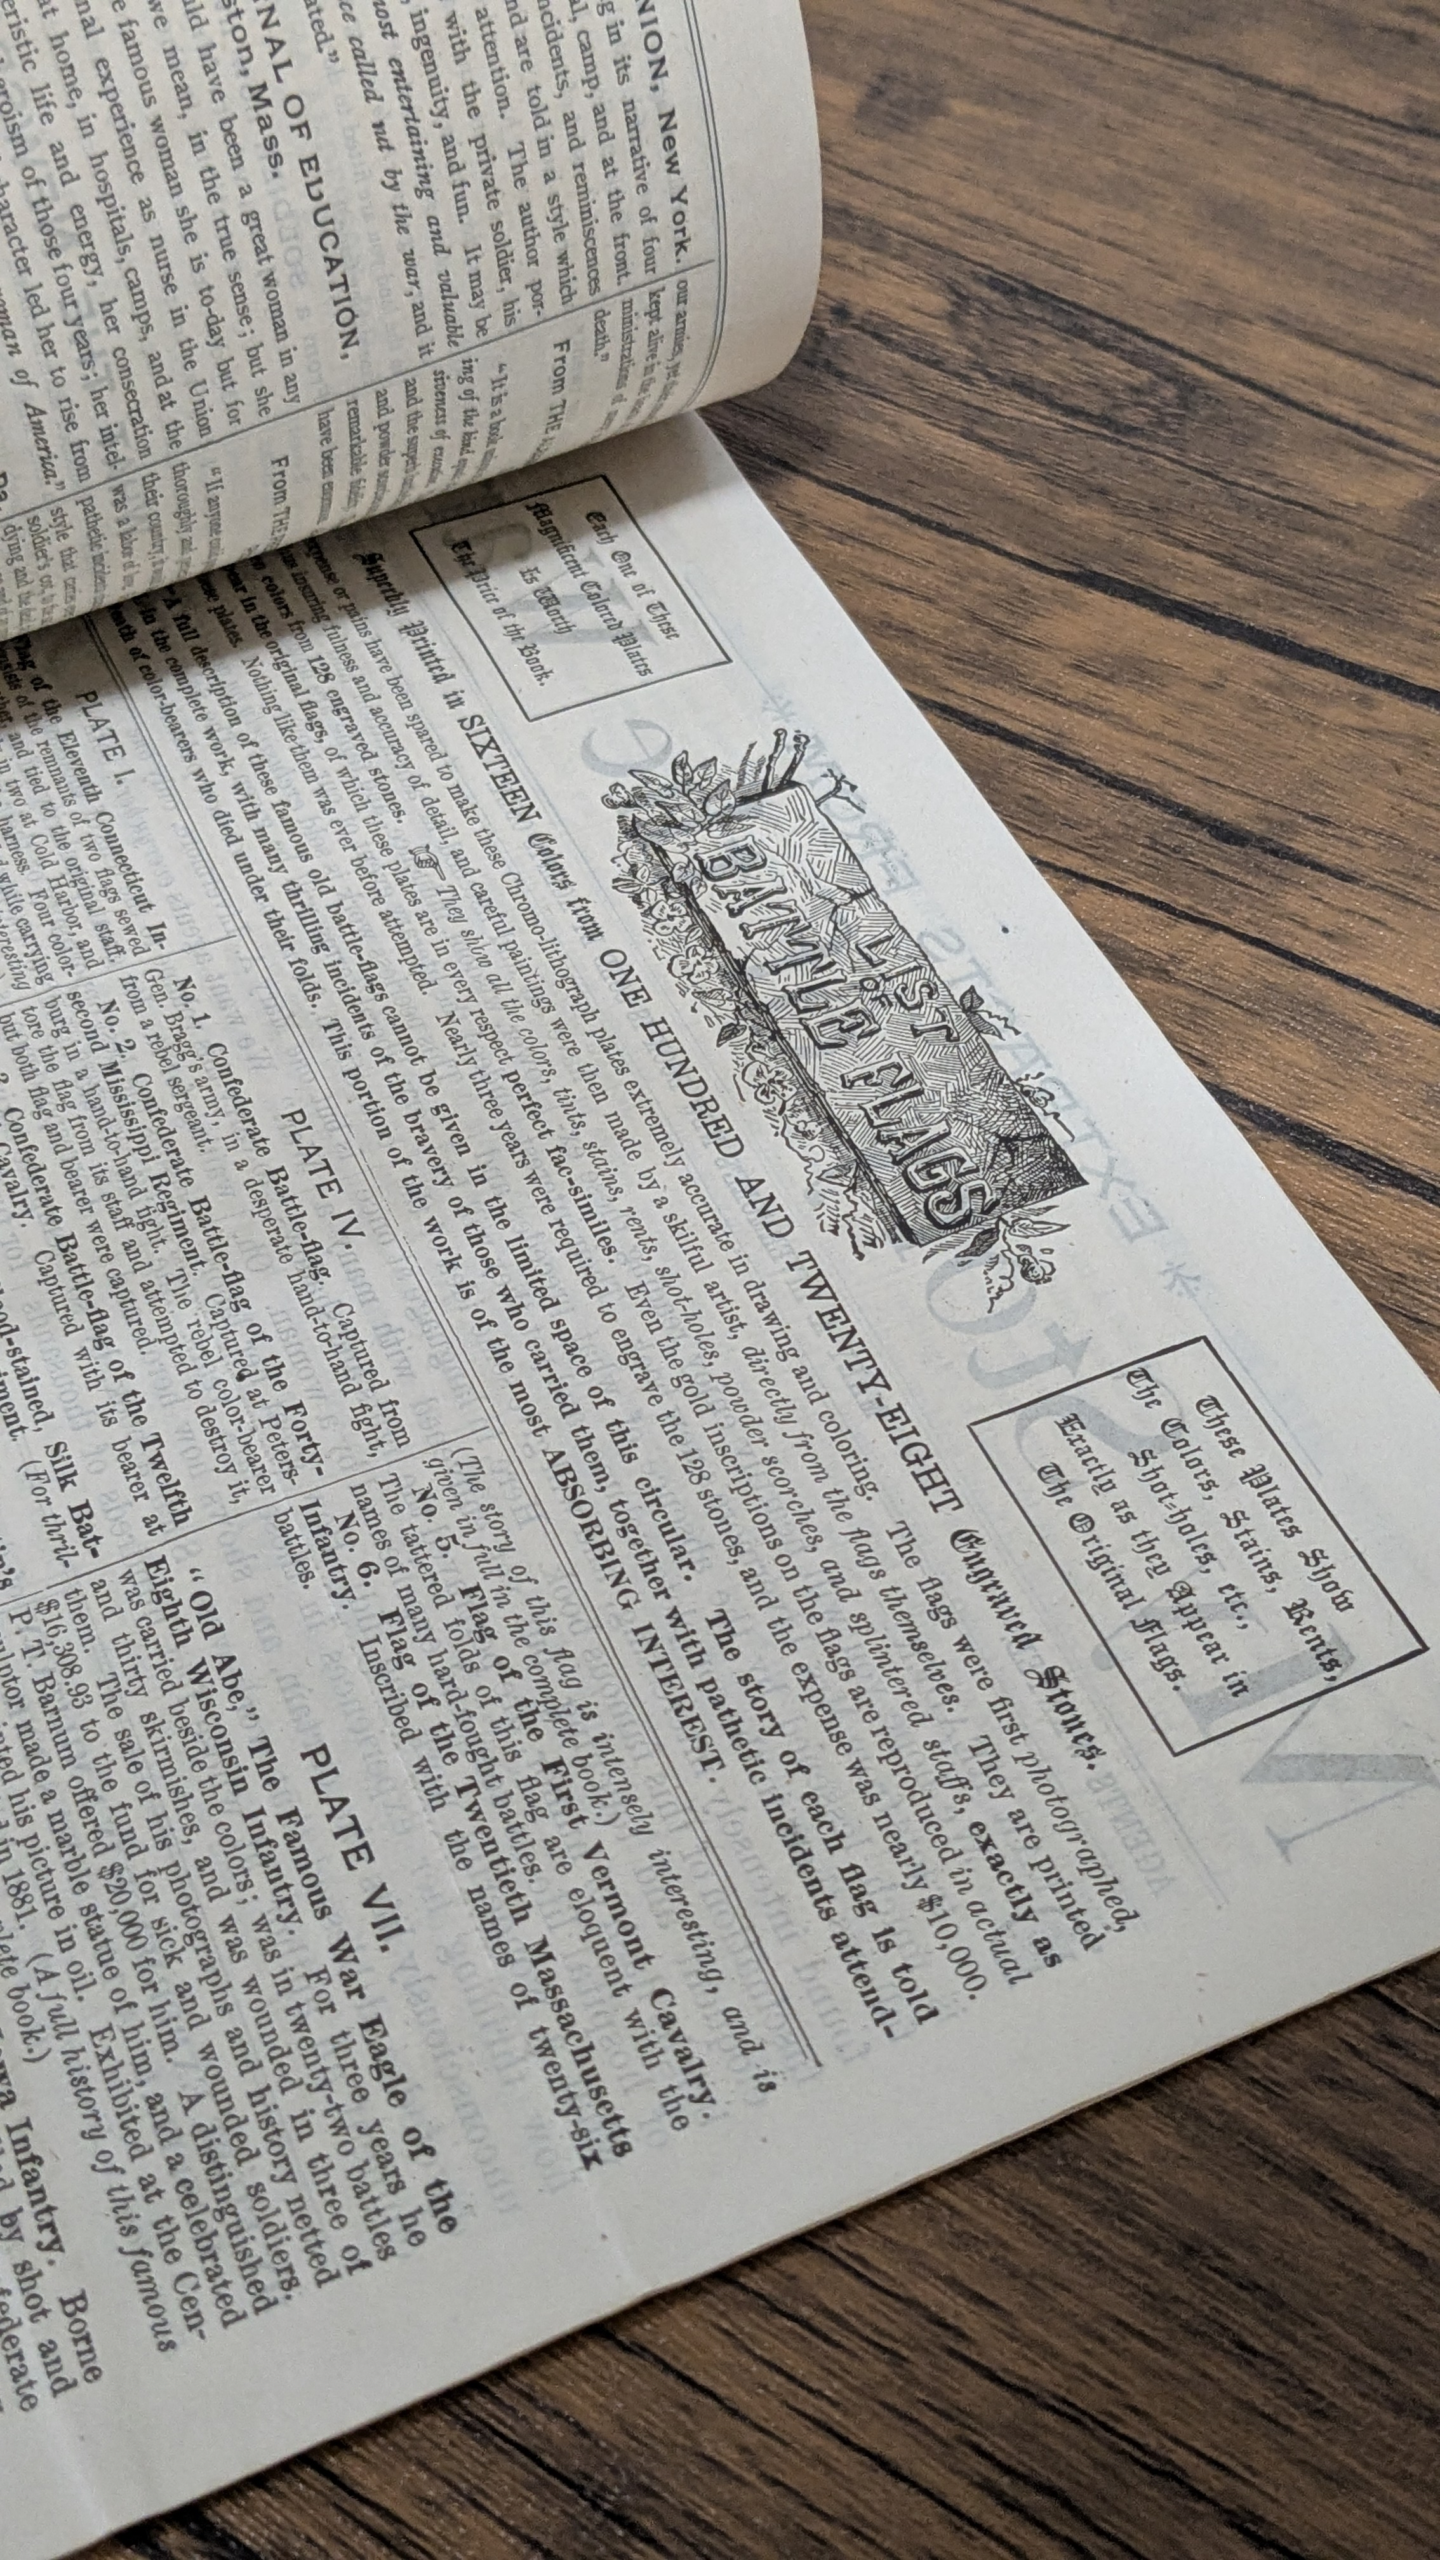 NION, New York.
g in its narrative of four
l, camp, and at the front.
ncidents, and reminiscences
nd are told in a style which
attention. The author por-
with the private soldier, his
ingenuity, and fun. It may be
most entertaining and valuable
ce called out by the war, and it
ated."
NAL OF EDUCATION,
ston, Mass.
ld have been a great woman in any
we mean, in the true sense; but she
e famous woman she is to-day but for
nal experience as nurse in the Union
at home, in hospitals, camps, and at the
eristic life and energy, her consecration
heroism of those four years; her intel-
character led her to rise from
woman of America."
our armies, yet
kept alive in the
ministrations of
death."
From THE
"It is a book
ing of the kind
siveness of
and the
and powder
remarkable
have been
From THE
"If anyone
thoroughly
their country,
was a labor
pathetic incidents
style that
soldier's cot,
dying and the
Each One of These
Magnificent Colored Plates
Is Worth
The Price of the Book.
LIST
OF
BATTLE FLAGS
These Plates Show
The Colors, Stains, Rents,
Shot-holes, etc.,
Exactly as they Appear in
The Original Flags.
Superbly Printed in SIXTEEN Colors from ONE HUNDRED AND TWENTY-EIGHT Engraved Stones.
expense or pains have been spared to make these Chromo-lithograph plates extremely accurate in drawing and coloring. The flags were first photographed,
thus insuring fulness and accuracy of detail, and careful paintings were then made by a skilful artist, directly from the flags themselves. They are printed
colors from 128 engraved stones. ☞ They show all the colors, tints, stains, rents, shot-holes, powder scorches, and splintered staffs, exactly as
appear in the original flags, of which these plates are in every respect perfect fac-similes. Even the gold inscriptions on the flags are reproduced in actual
these plates. Nothing like them was ever before attempted. Nearly three years were required to engrave the 128 stones, and the expense was nearly $10,000.
A full description of these famous old battle-flags cannot be given in the limited space of this circular. The story of each flag is told
in the complete work, with many thrilling incidents of the bravery of those who carried them, together with pathetic incidents attend-
death of color-bearers who died under their folds. This portion of the work is of the most ABSORBING INTEREST.
PLATE I.
Flag of the Eleventh Connecticut In-
consists of the remnants of two flags sewed
together, and tied to the original staff.
in two at Cold Harbor, and
harness. Four color-
while carrying
interesting
PLATE IV.
No. 1. Confederate Battle-flag. Captured from
Gen. Bragg's army, in a desperate hand-to-hand fight,
from a rebel sergeant.
No. 2. Confederate Battle-flag of the Forty-
second Mississippi Regiment. Captured at Peters-
burg in a hand-to-hand fight. The rebel color-bearer
tore the flag from its staff and attempted to destroy it,
but both flag and bearer were captured.
3. Confederate Battle-flag of the Twelfth
Cavalry. Captured with its bearer at
blood-stained, Silk Bat-
iment. (For thril-
(The story of this flag is intensely interesting, and is
given in full in the complete book.)
No. 5. Flag of the First Vermont Cavalry.
The tattered folds of this flag are eloquent with the
names of many hard-fought battles.
No. 6. Flag of the Twentieth Massachusetts
Infantry. Inscribed with the names of twenty-six
battles.
PLATE VII.
"Old Abe," The Famous War Eagle of the
Eighth Wisconsin Infantry. For three years he
was carried beside the colors; was in twenty-two battles
and thirty skirmishes, and was wounded in three of
them. The sale of his photographs and history netted
$16,308.93 to the fund for sick and wounded soldiers.
P. T. Barnum offered $20,000 for him. A distinguished
sculptor made a marble statue of him, and a celebrated
painted his picture in oil. Exhibited at the Cen-
in 1881. (A full history of this famous
complete book.)
Iowa Infantry. Borne
by shot and
federate